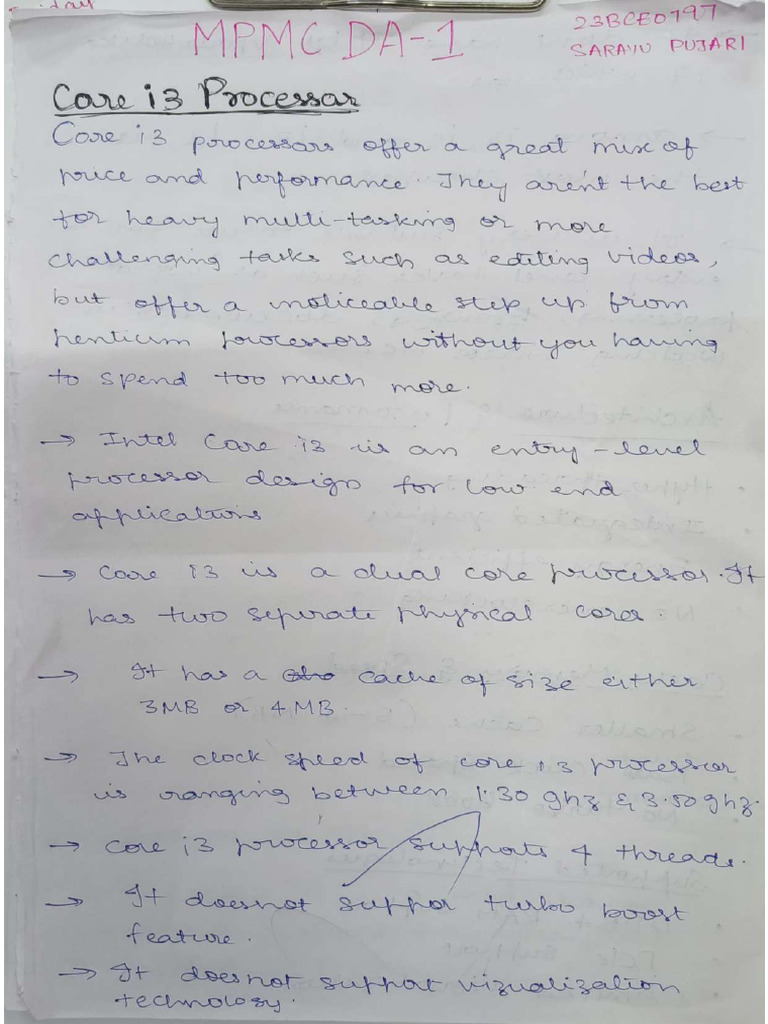 MPMC DA-1
23BCE0797
SARAYU PUJARI
Core i3 Processor
Core i3 processors offer a great mix of
price and performance. They aren't the best
for heavy multi-tasking or more
challenging tasks such as editing videos,
but offer a noticeable step up from
pentium processors without you having
to spend too much more.
→ Intel Core i3 is an entry-level
processor design for low end
applications
→ Core i3 is a dual core processor. It
has two seperate physical cores.
→ It has a cache of size either
3MB or 4MB.
→ The clock speed of core i3 processor
is ranging between 1.30 ghz & 3.50 ghz.
→ Core i3 processor supports 4 threads.
→ It doesnot suppor turbo boost
feature.
→ It doesnot support vizualization
technology.